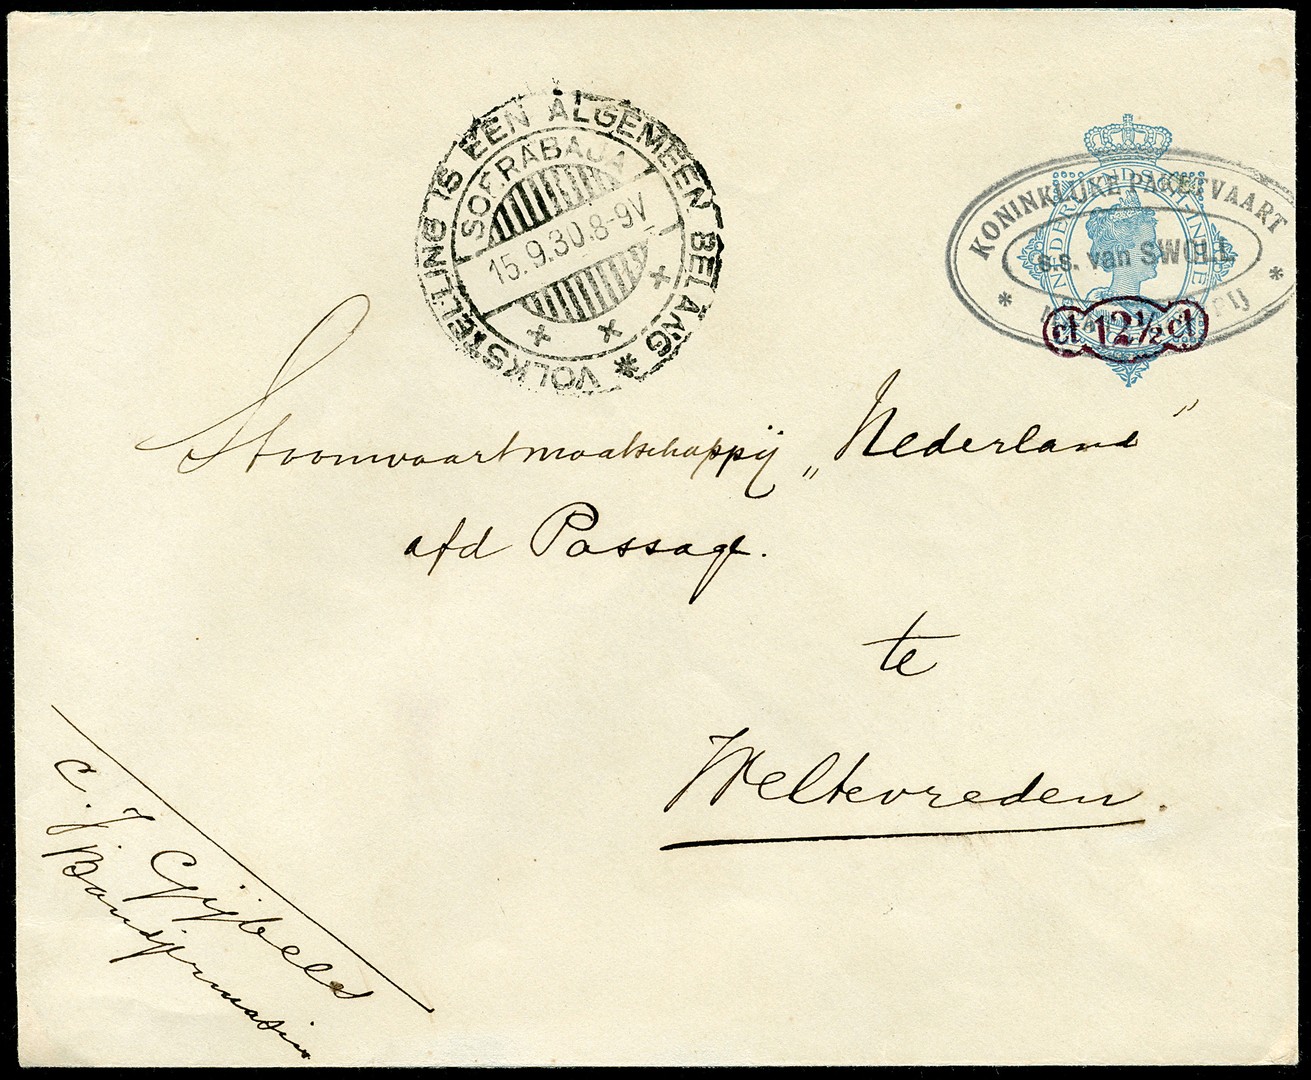 VOLKSTELLING IS EEN ALGEMEEN BELANG *
SOERABAJA
15.9.30.8-9V
KONINKLIJKE PAKETVAART
s.s. van SWOLL
NEDERLANDSCH INDIE
ct 12½ ct
Stoomvaartmaatschappij „Nederland”
afd Passage.
te
Weltevreden.
C. J. Gijbels
Bandjermasin